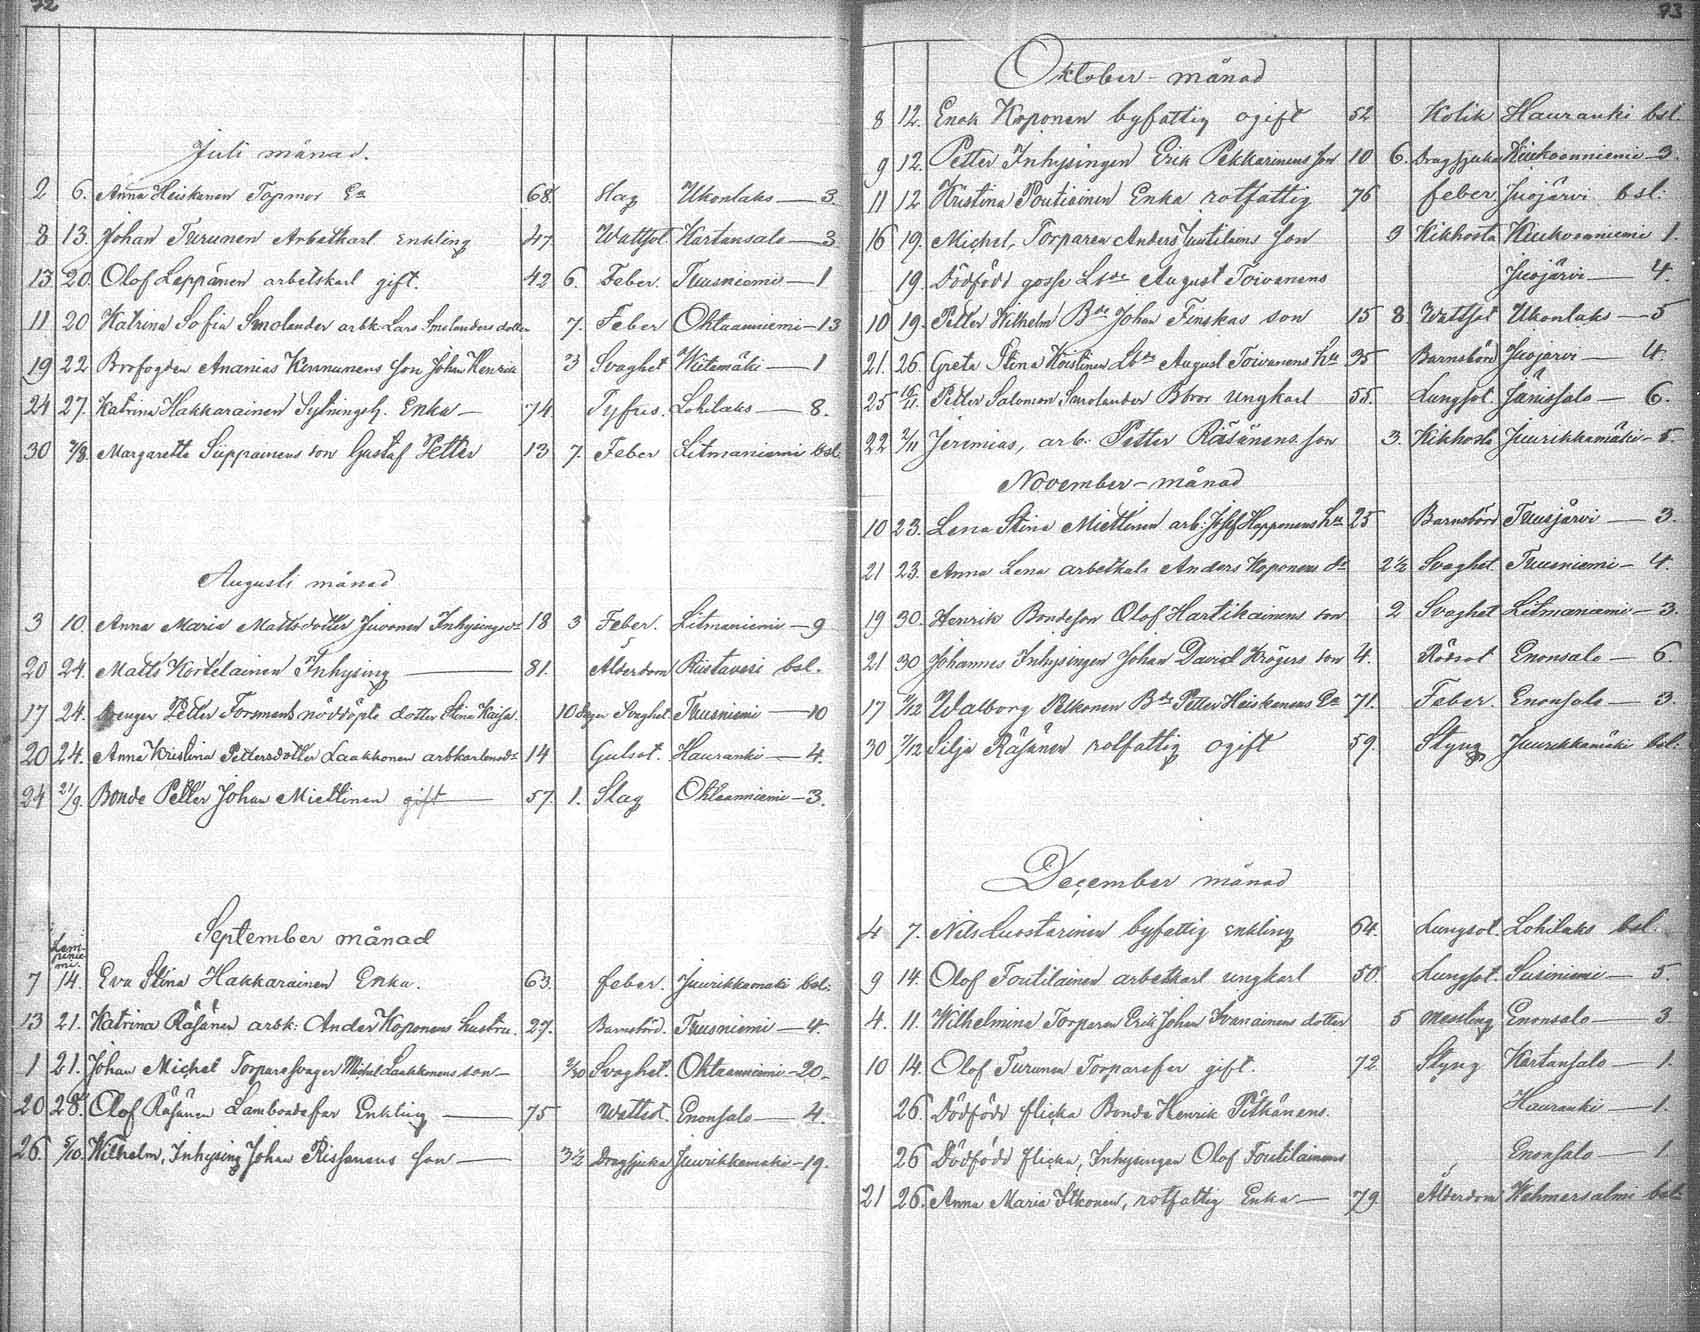 72
Juli månad.
2 6. Anna Heiskanen Töpmor Ea 68. Slag Ukonlaks — 3.
8 13. Johan Turunen Arbetkarl enkling 47. Wattsot Kartansalo — 3.
13 20. Olof Leppänen arbetskarl gift. 42 6. Feber. Tuusniemi — 1
11 20 Katrina Sofia Smolander arbk. Lars Smolanders dotter 7. Feber Ohtaanniemi — 13
19 22 Brofogden Ananias Kinnunens son Johan Henrik 3 Svaghet Wiitamäki — 1
24 27. Katrina Hakkarainen Sytningsh. Enka — 74. Tyfus. Lohilaks — 8.
30 2/8. Margaretta Suppainens son Gustaf Petter 13 7. Feber Litmaniemi bsl.
Augusti månad
3 10. Anna Maria Mattsdotter Juvonen Inhysingsdr 18 3 Feber. Litmaniemi — 9
20 24. Matts Kortelainen Inhysing — 81. Ålderdom Riistavesi bsl.
17 24. Petter Forsmans nöddöpte dotter Stina Kaisa. 10 dagar Svaghet Tuusniemi — 10
20 24. Anna Kristina Pettersdotter Laakkonen arbkarlensdr 14 Gulsot. Hauranki — 4.
24 21/9. Bonde Petter Johan Miettinen gift — 57. 1. Slag Ohtaanniemi — 3.
September månad
7 14. Eva Stina Hakkarainen Enka. 63. feber. Juurikkamäki bsl.
13 21. Katrina Räsänen arbk: Ander Koponens hustru. 27. Barnsbörd. Tuusniemi — 4.
1 21. Johan Michel Torparesvager Michel Laakkonens son — 2/30 Svaghet. Ohtaanniemi — 20.
20 28. Olof Räsänen Lambondefar Enkling — 75 Wattsot. Enonsalo — 4.
26. 5/10. Wilhelm, Inhysing Johan Rissanens son — 3½ Dragsjuka Juurikkamäki — 19.
73
Oktober — månad
8 12. Enok Koponen byfattig ogift 52 Kolik Hauranki bsl.
9 12. Petter Inhysingen Erik Pekkarinens son 10 6. Dragsjuka Kiukoonniemi 3.
11 12 Kristina Poutiainen Enka rotfattig 76 feber. Juojärvi bsl.
16 19. Michel, Torparen Anders Juutilains son 3 Kikhosta Kiukoonniemi 1.
19. Dödfödd gosse Lbde August Toivanens Juojärvi — 4.
10 19. Petter Wilhelm Bde Johan Finskas son 15 8 Wattsot Ukonlaks — 5
21. 26. Greta Stina Koistinen Lbde August Toivanens hu 35 Barnsbörd Juojärvi — 4.
25 Petter Salomon Smolander Bbror ungkarl 55. Lungsot. Jänissalo — 6.
22 2/11 Jeremias, arb: Petter Räsänens son 3. Kikhosta Juurikkamäki — 5.
November — månad
10 23. Lena Stina Miettinen arb. Josef Happonens hu 25 Barnsbörd Tuusjärvi — 3.
21 23. Anna Lena arbetkals Anders Koponens dr 2½ Svaghet. Tuusniemi — 4.
19 30. Henrik Bondeson Olof Hartikainens son 2 Svaghet Litmaniemi — 3.
21 30 Johannes Inhysingen Johan David Krögers son 4. Rödsot Enonsalo — 6.
17 Walborg Pelkonen Bde Petter Heiskanens Ea 71. Feber. Enonsalo — 3.
30 7/12 Silja Räsänen rotfattig ogift 59. Styng Juurikkamäki bsl.
December månad
4 7. Nils Luostarinen byfattig enkling 64. Lungsot. Lohilaks bsl.
9 14. Olof Toutilainen arbetkarl ungkarl 50. Lungsot. Susiniemi — 5.
4. 11. Wilhelmina Torparen Erik Johan Ivanainens dotter 5 messling Enonsalo — 3.
10 14. Olof Turunen Torparefar gift. 72 Styng Kartansalo — 1.
26. Dödfödd flicka Bonde Henrik Pitkänens. Hauranki — 1.
26 Dödfödd flicka, Inhysingen Olof Toutilainens Enonsalo — 1
21 26. Anna Maria Itkonen, rotfattig Enka — 79. Ålderdom Wehmersalmi bsl.